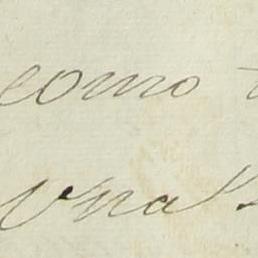 como
una